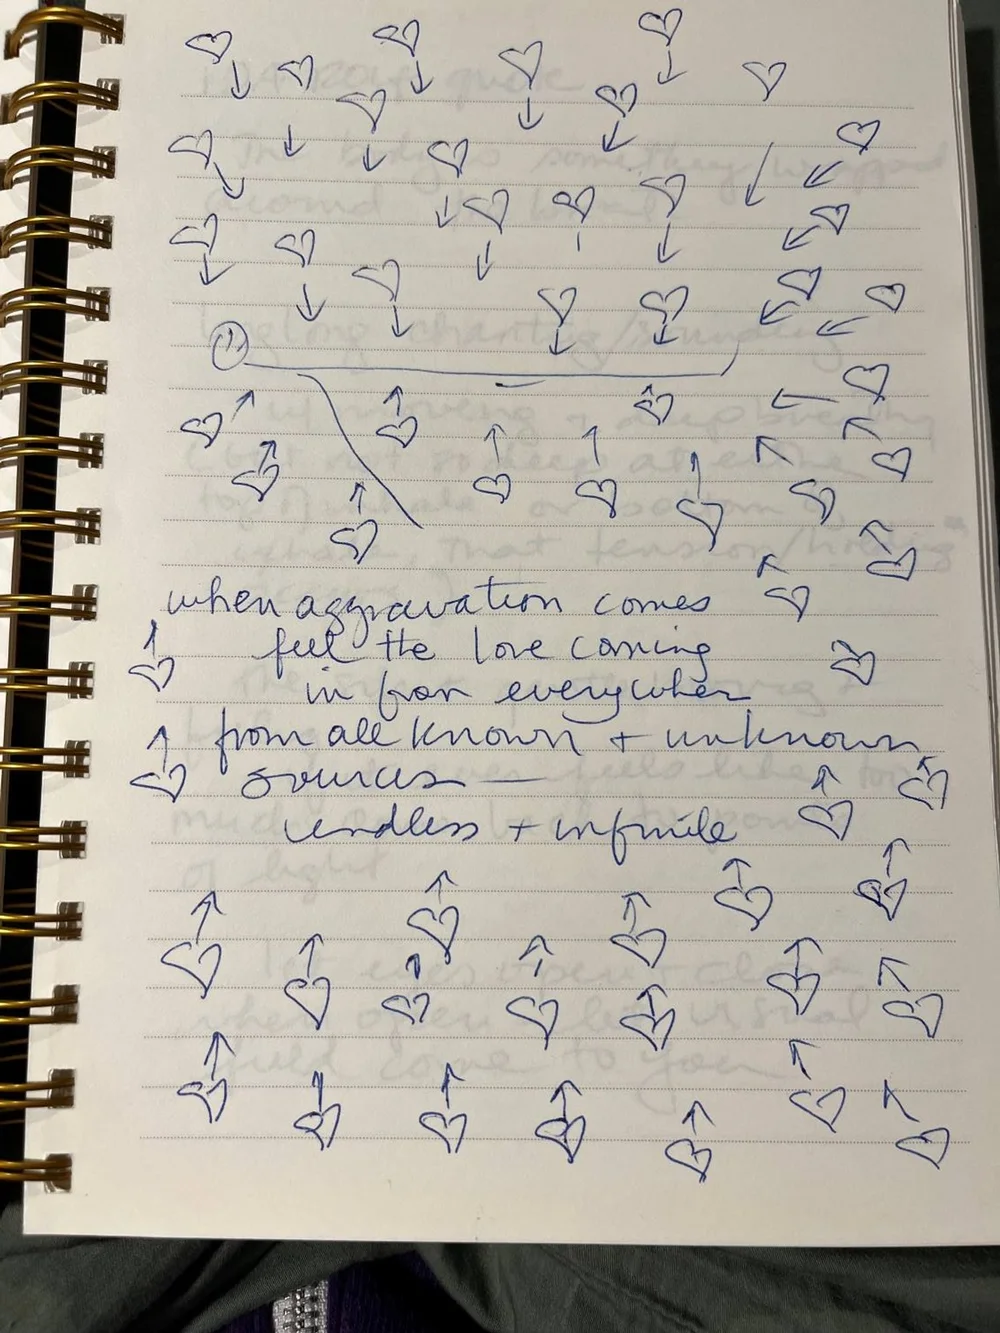 when aggravation comes
feel the love coming
in from everywhere
from all known + unknown
sources —
endless + infinite